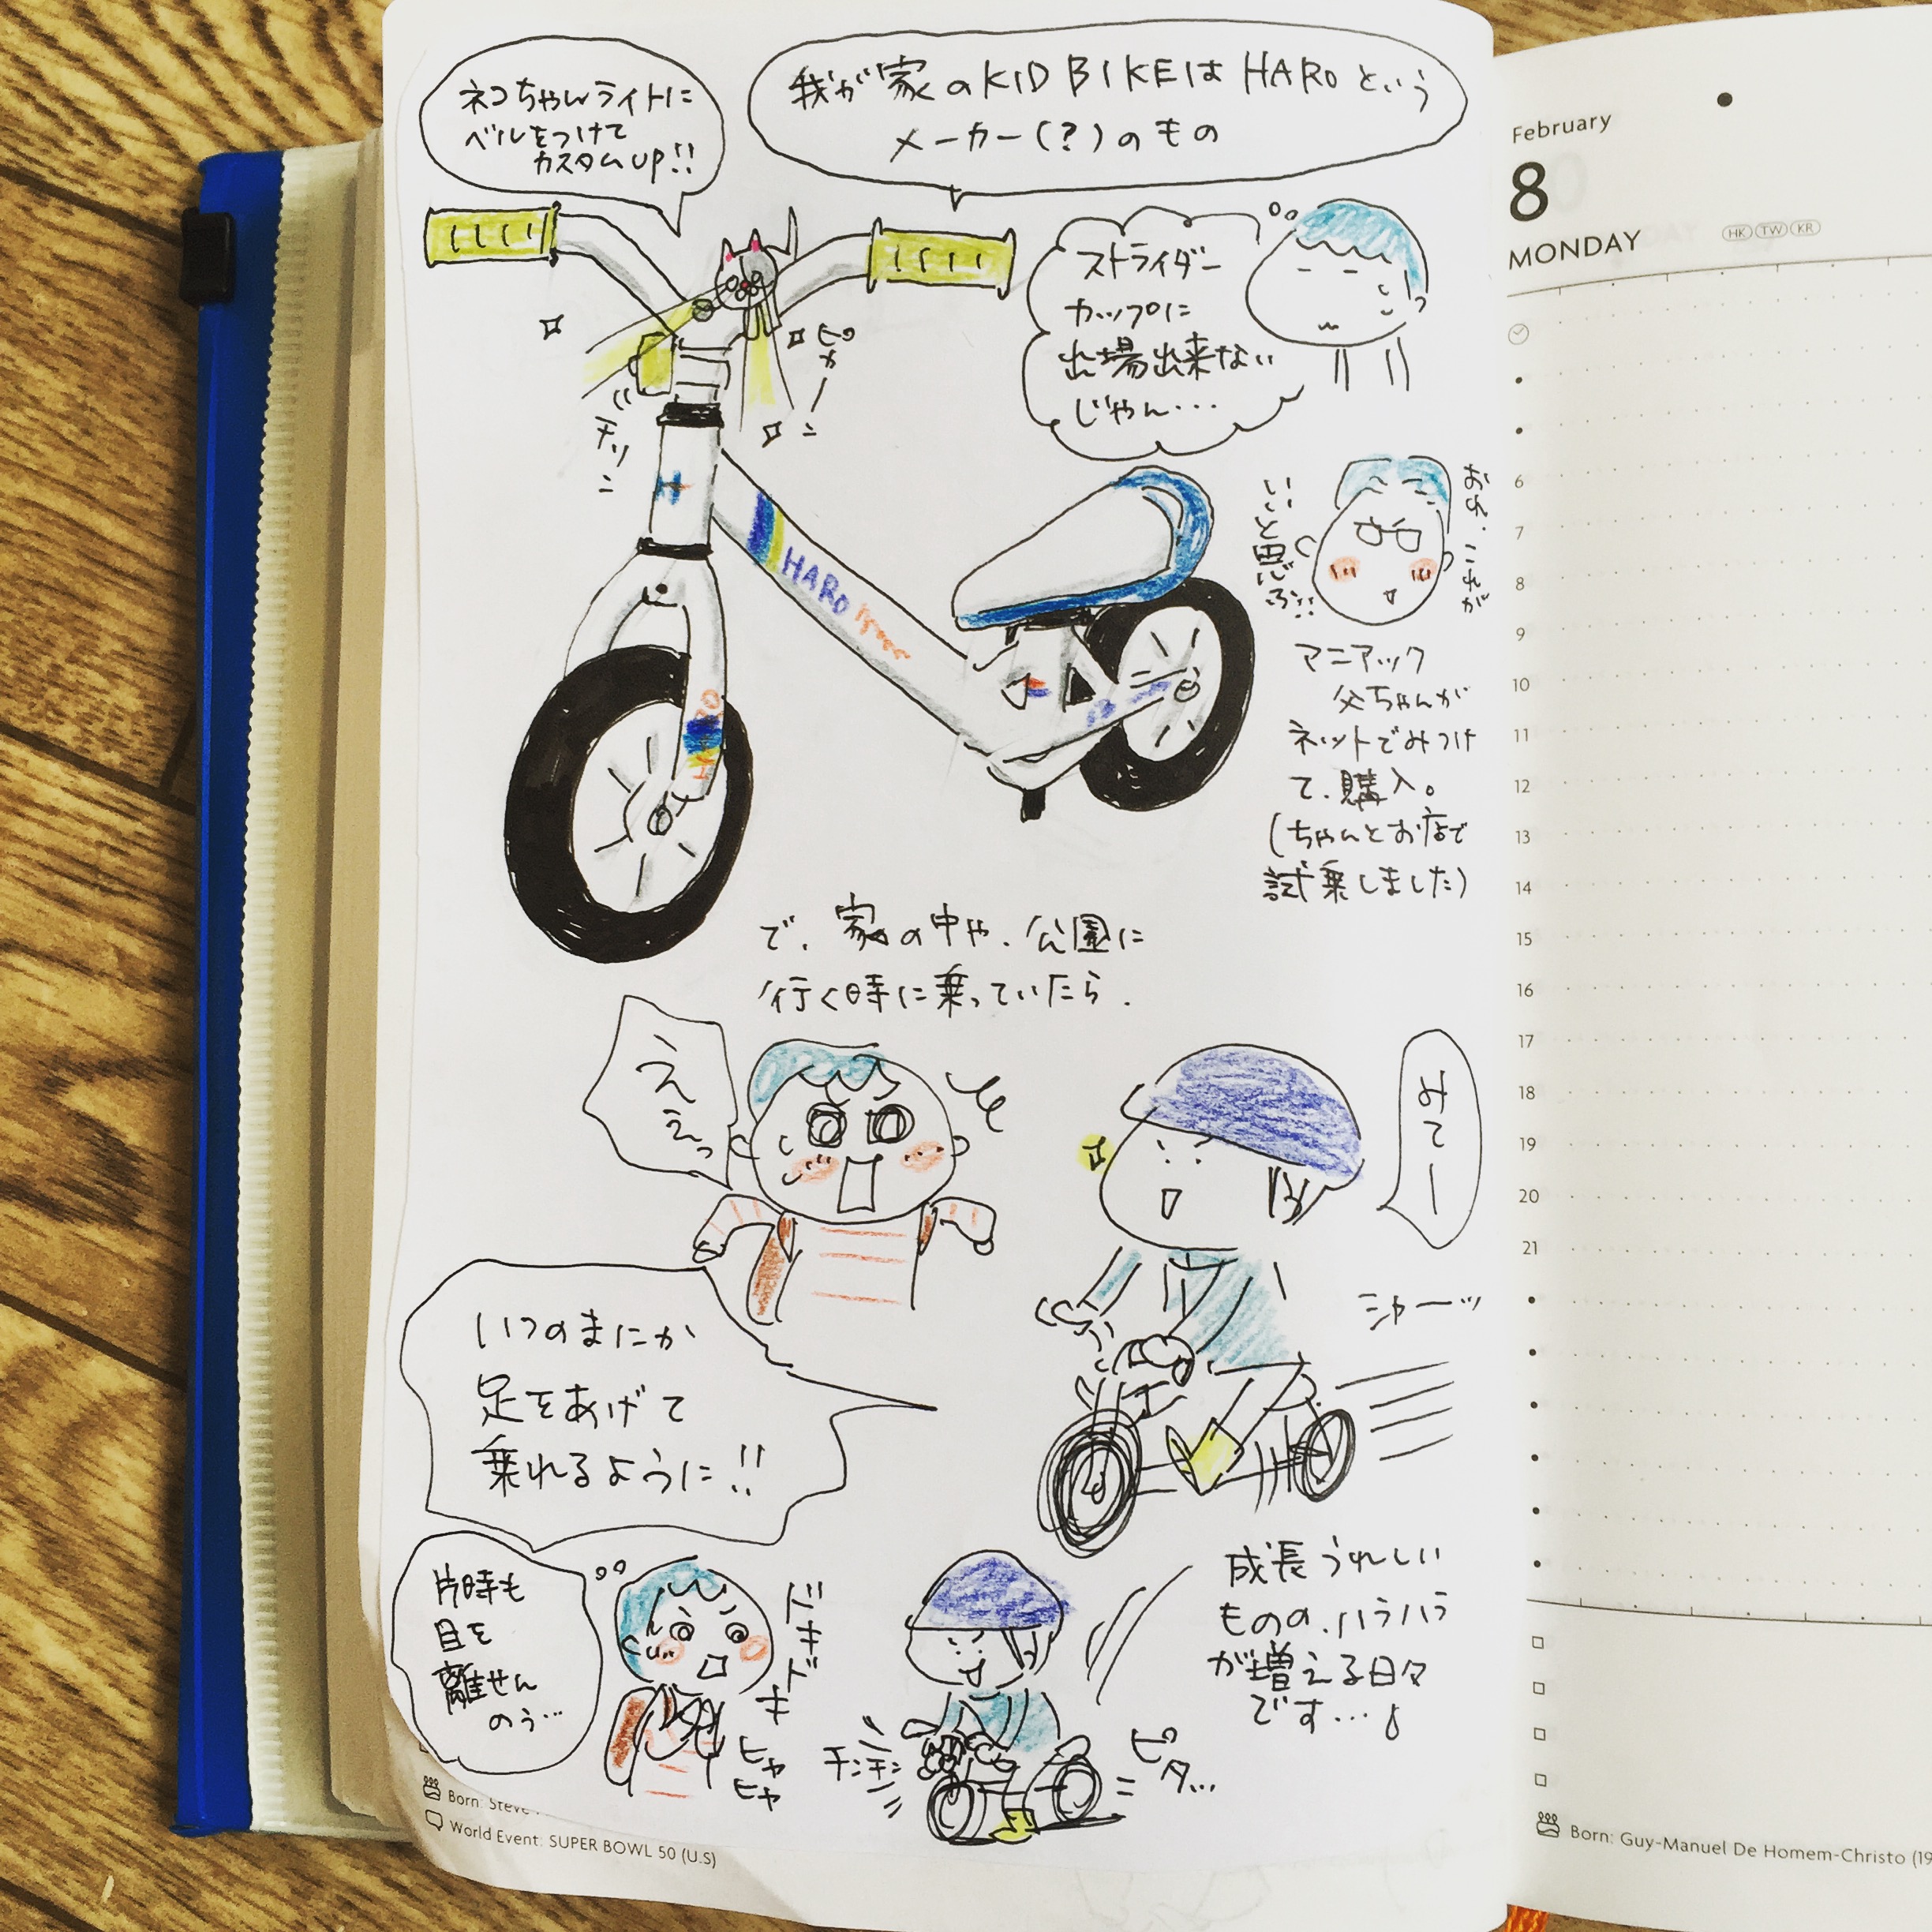 ネコちゃんライトに
ベルをつけて
カスタムup!!
我が家のKID BIKEは HAROという
メーカー(?)のもの
ストライダー
カップに
出場出来ない
じゃん・・・
ピカーン
チリーン
H
HARO
HARO
おお、これが
いいと思ふ!!
マニアック
父ちゃんが
ネットでみつけ
て、購入。
(ちゃんとお店で
試乗しました)
で、家の中や、公園に
行く時に乗っていたら、
ええっ
みてー
シャーッ
いつのまにか
足をあげて
乗れるように!!
片時も
目を
離せん
のう…
ドキドキ
ヒヤ
ヒヤ
チンチン
ピタ…
成長うれしい
ものの、ハラハラ
が増える日々
です…
Born: Steve
World Event: SUPER BOWL 50 (U.S)
February
8
MONDAY
HK TW KR
6
7
8
9
10
11
12
13
14
15
16
17
18
19
20
21
Born: Guy-Manuel De Homem-Christo (19